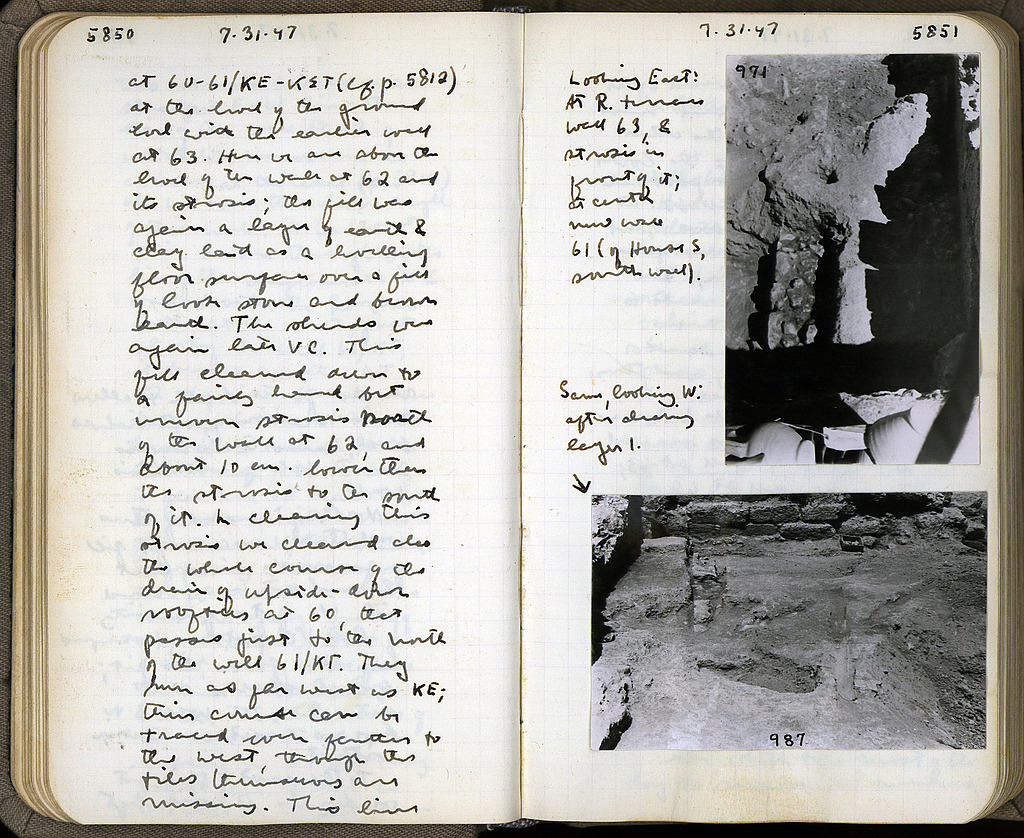 5850
7·31·47
at 60-61/KE-KΣT (cf. p. 5812)
at the level of the ground
level with the earlier wall
at 63. Here we are above the
level of the wall at 62 and
its strosis; the fill was
again a layer of earth &
clay laid as a bedding
floor surface over a fill
of loose stone and brown
earth. The sherds were
again late VC. This
fill cleaned down to
a fairly hard but
uneven strosis north
of the wall at 62, and
about 10 cm. lower than
the strosis to the south
of it. In cleaning this
strosis we cleaned also
the whole course of the
drain of upside-down
rooftiles at 60, that
passes just to the north
of the wall 61/KT. They
run as far west as KE;
their course can be
traced even farther to
the west, though the
tiles themselves are
missing. This lines
7·31·47
5851
Looking East:
At R. terrace
wall 63, &
strosis in
front of it;
at center
new wall
61 (of House S,
south wall).
971
Same, looking W.
after clearing
layer 1.
987